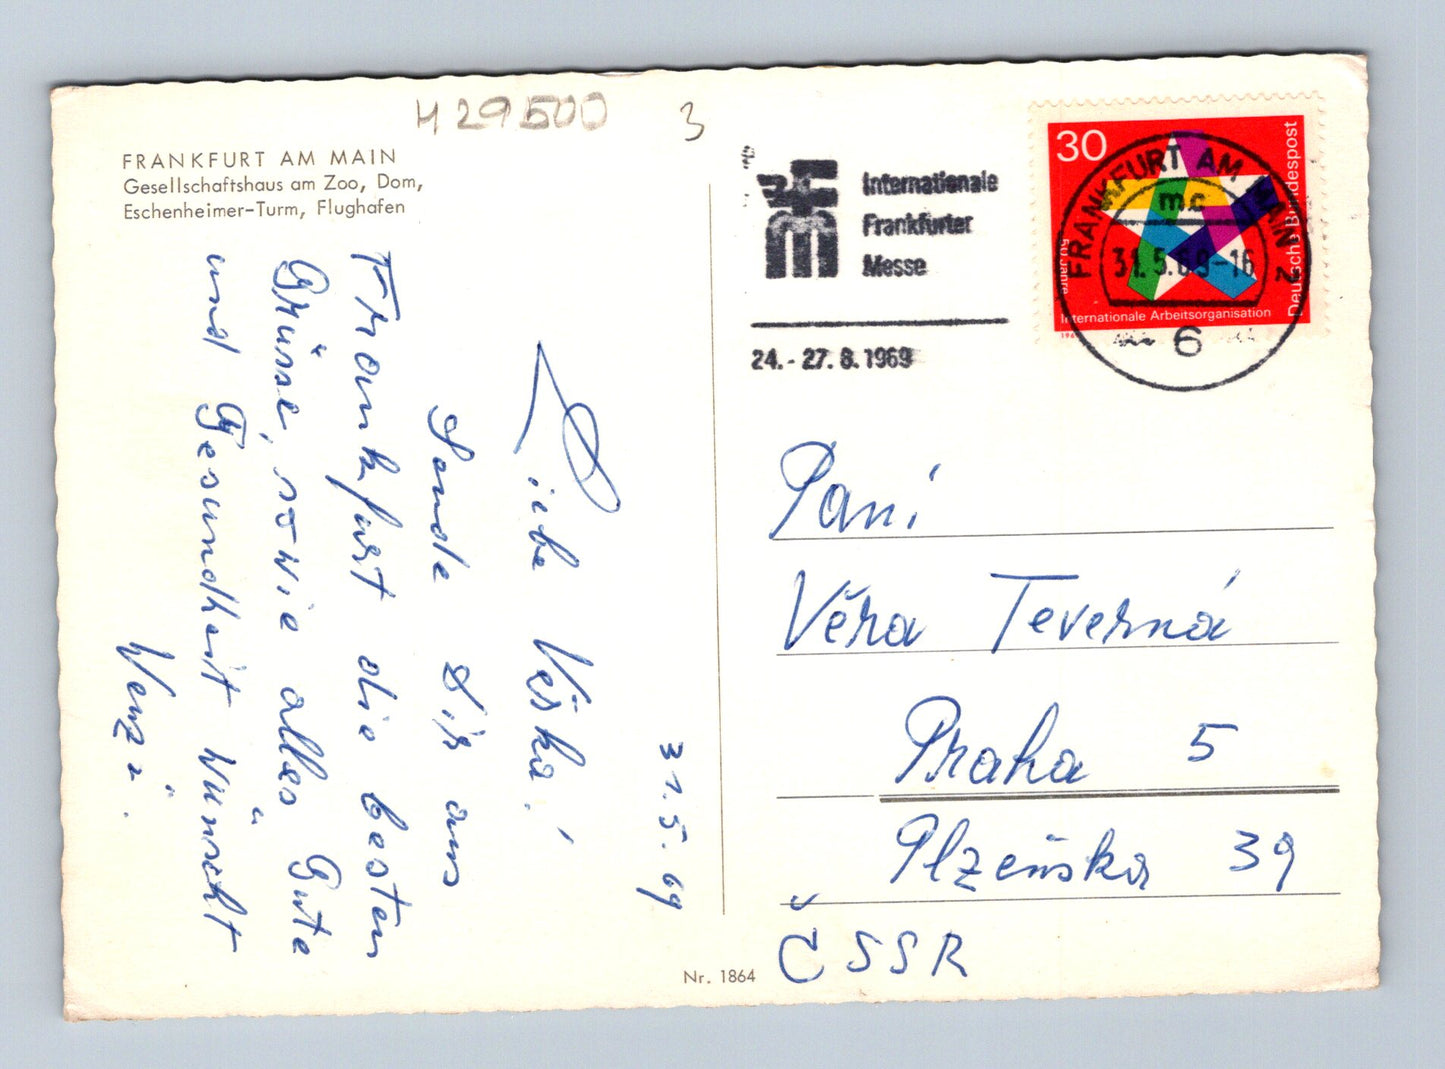 H 29500
3
FRANKFURT AM MAIN
Gesellschaftshaus am Zoo, Dom,
Eschenheimer-Turm, Flughafen
31.5.69
Liebe Věrka!
Sende Dir aus
Frankfurt die besten
Grüsse, sowie alles Gute
und Gesundheit wünscht
Internationale
Frankfurter
Messe
24.-27.8.1969
30
Deutsche Bundespost
50 Jahre
Internationale Arbeitsorganisation
FRANKFURT AM MAIN 2
mc
31.5.69-16
6
Paní
Věra Teverná
Praha 5
Plzeňska 39
ČSSR
Nr. 1864